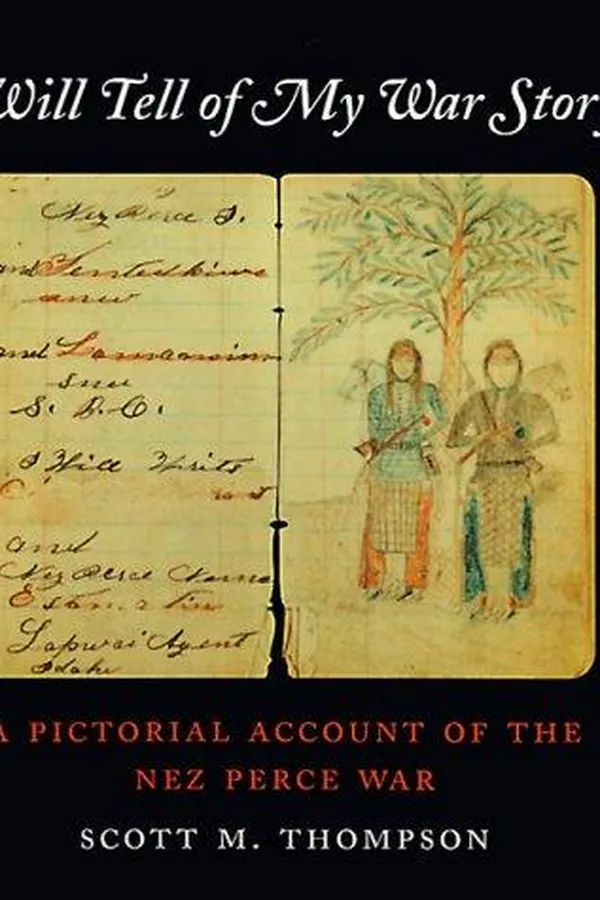 Will Tell of My War Story
Nez Perce I.
and
anw
and
snu
S. D. C.
I Will Write
and
Nez Perce Name
Lapwai Agent
Idaho
A PICTORIAL ACCOUNT OF THE
NEZ PERCE WAR
SCOTT M. THOMPSON